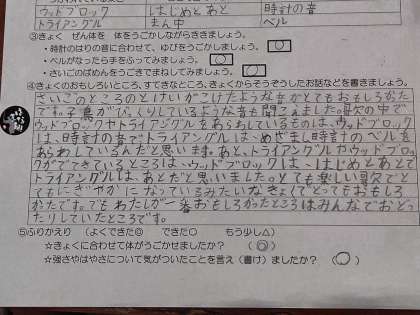 ウッドブロック はじめとあと 時計の音
トライアングル まん中 ベル
③きょく ぜん体を 体をうごかしながらききましょう。
・時計のはりの音に合わせて、ゆびをうごかしましょう。 ○
・ベルがなったら手をふってみましょう。 ○
・さいごのばめんをうごきでまねしてみましょう。 ○
④きょくのおもしろいところ、すてきなところ、きょくからそうぞうしたお話などを書きましょう。
さいごのところのとけいがこけたような音のとてもおもしろかた
です。子鳥がびっくりしているような音も聞こえました。歌の中で、
ウッドブロックやトライアングルをあらわしているものは、ウッドブロック
は、時計の音で、トライアングルは、めざまし時計のベルを
あらわしているんだと思います。あと、トライアングルやウッドブロッ
クがでてきているところは、ウッドブロックは、はじめとあとで
トライアングルは、あとだと思いました。とても楽しい歌でと
てもにぎやかになっているみたいなきょくでとってもおもしろ
かたです。でもわたしが一番おもしろかたところはみんなでおどっ
たりしていたところです。
⑤ふりかえり (よくできた◎ できた○ もう少し△)
☆きょくに合わせて体がうごかせましたか? (◎)
☆強さやはやさについて気がついたことを言え(書け)ましたか? (○)